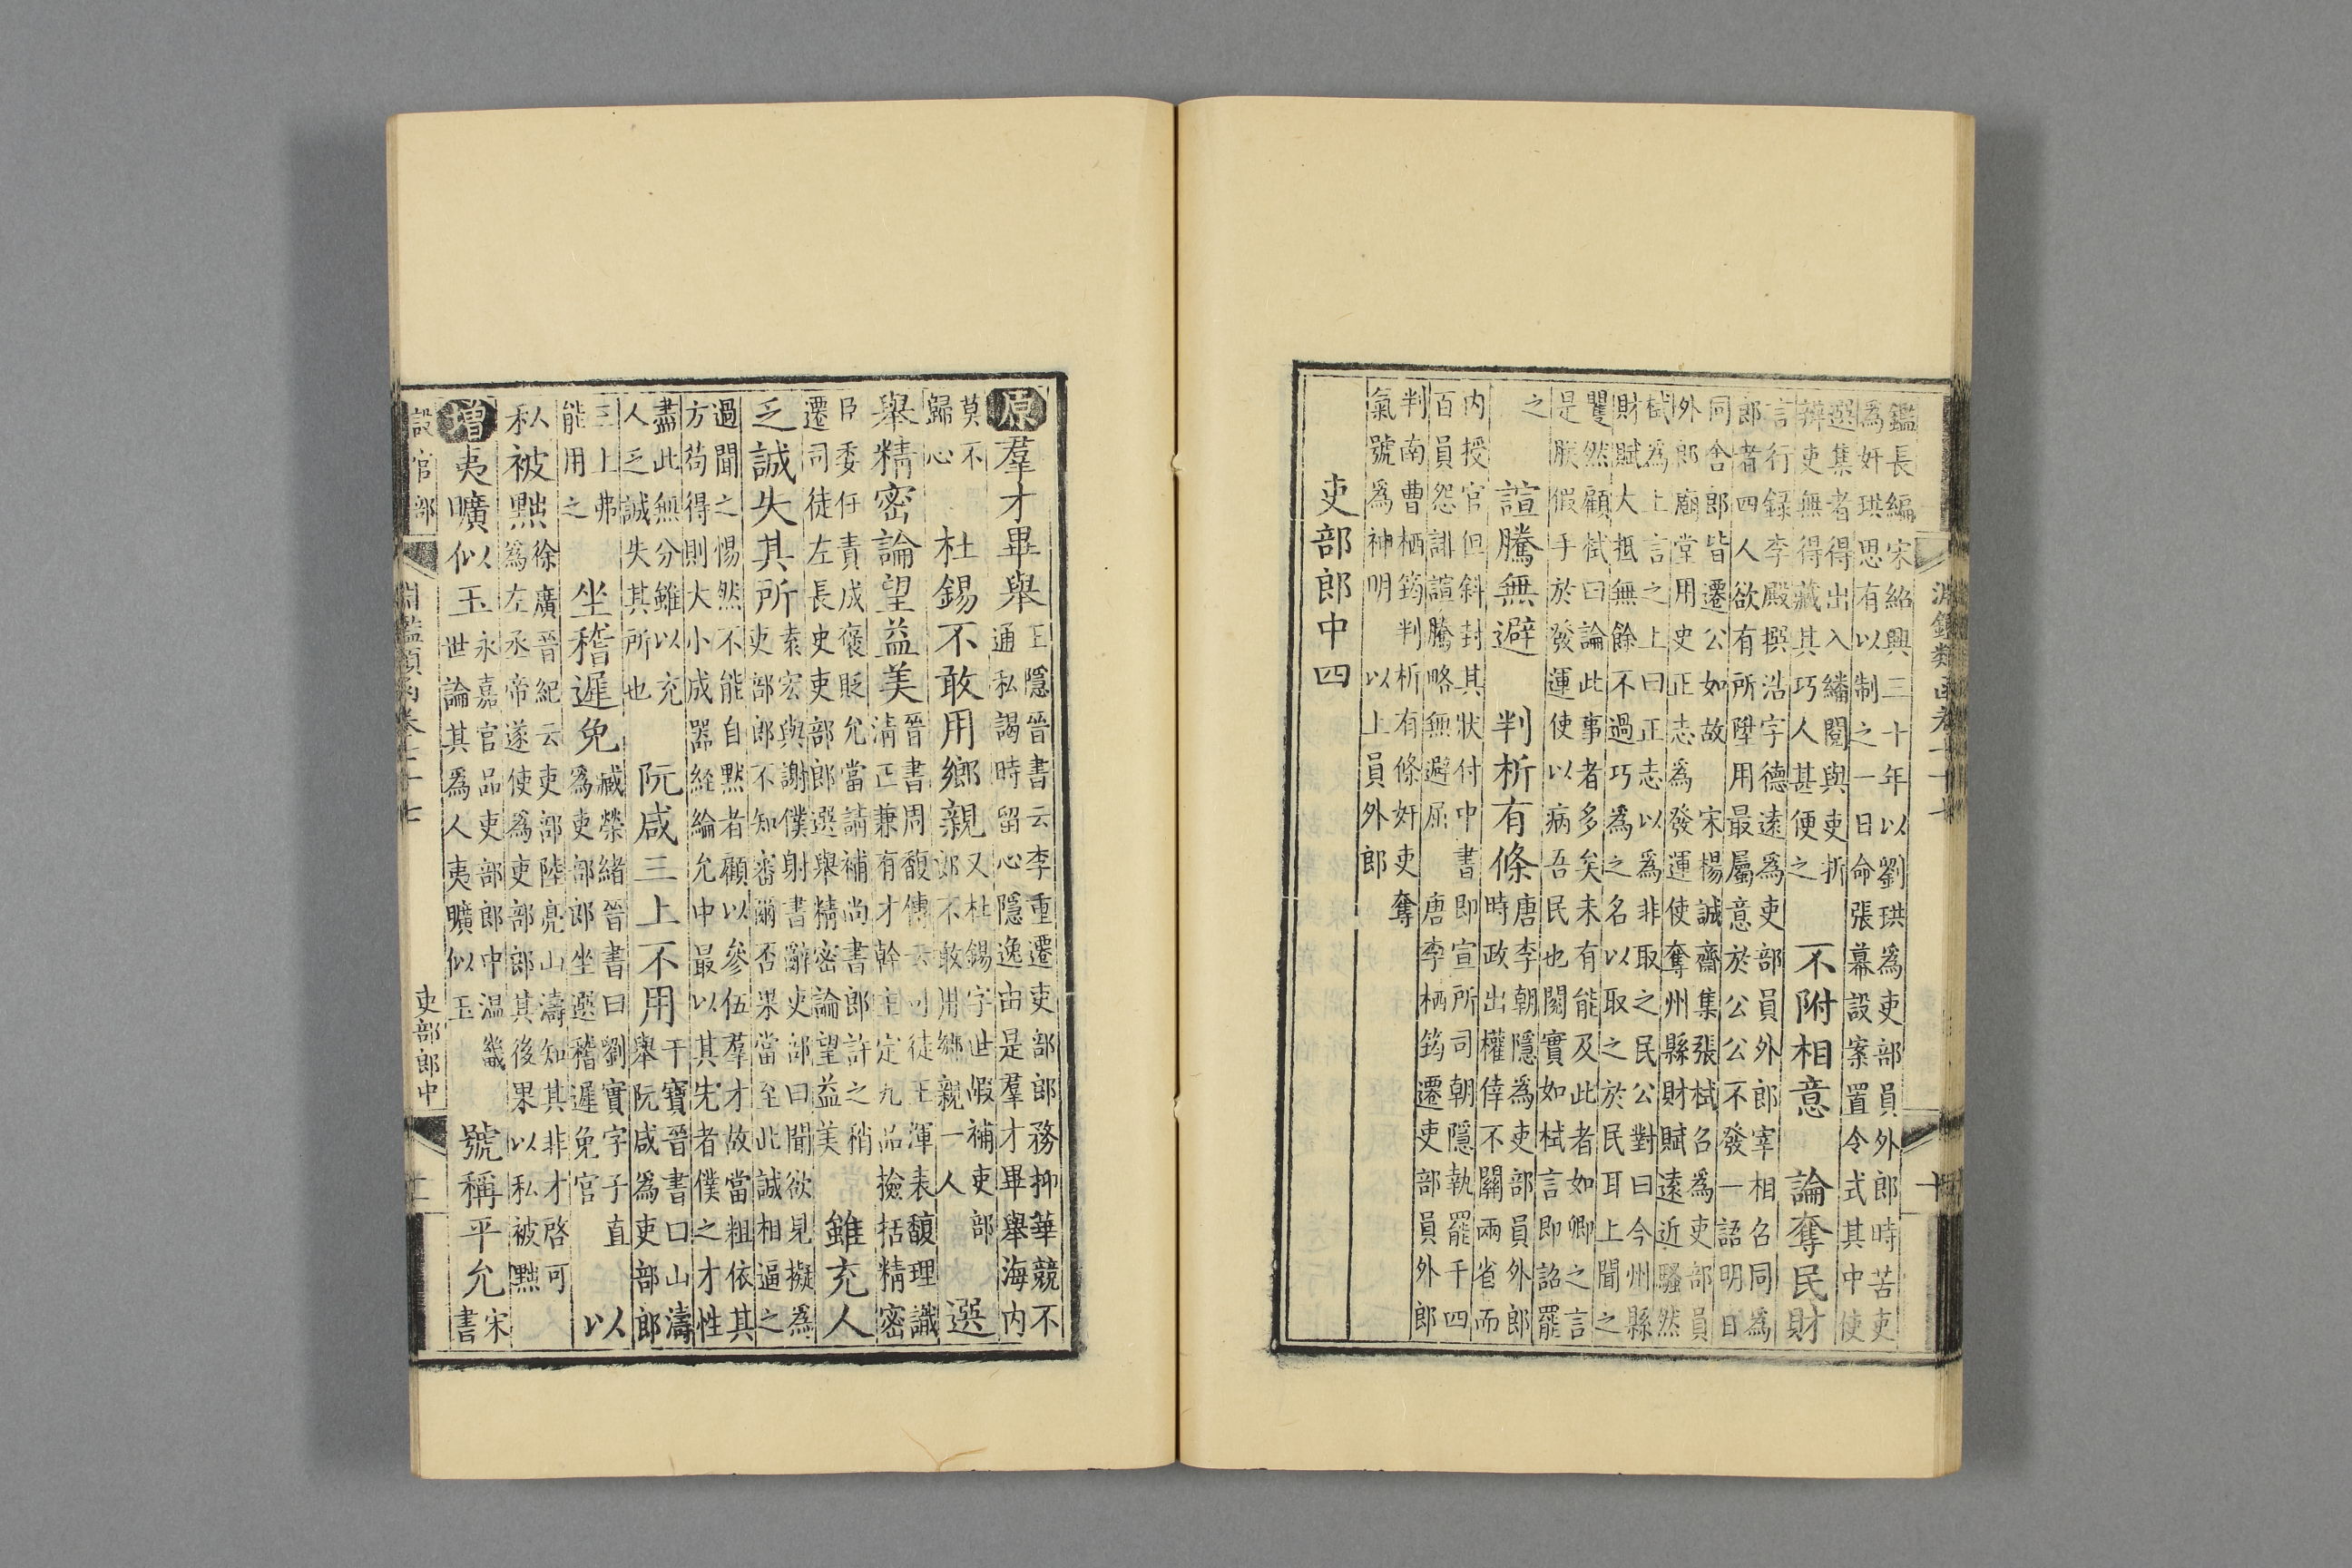 鑑長編宋紹興三十年以劉珙為吏部員外郎時苦吏
為奸珙思有以制之一日命張幕設案置令式其中使
選集者得出入繙閱與吏折
辨吏無得藏其巧人甚便之
不附相意　論奪民財
言行録李殿撰浩字德遠為吏部員外郎宰相召同為
郎者四人欲有所陞用最屬意於公公不發一語明日
同舍郎皆遷公如故　宋楊誠齋集張栻召為吏部員
外郎廟堂用史正志為發運使奪州縣財賦遠近騷然
栻為上言之上曰正志以為非取之民公對曰今州縣
財賦大抵無餘不過巧為之名以取之於民耳上聞之
矍然顧栻曰論此事者多矣未有能及此者如卿之言
是朕假手於發運使以病吾民也閱實如栻言即詔罷
之
諠騰無避　判析有條
唐李朝隱為吏部員外郎
時政出權倖不關兩省而
内授官但斜封其狀付中書即宣所司朝隱執罷千四
百員怨誹諠騰略無避屈　唐李栖筠遷吏部員外郎
判南曹栖筠判析有條奸吏奪
氣號為神明　以上員外郎
吏部郎中四
原羣才畢舉
王隱晉書云李重遷吏部郎務抑華競不
通私謁時留心隱逸由是羣才畢舉海内
莫不
歸心
杜錫不敢用鄉親
又杜錫字世嘏補吏部
郎不敢用鄉親一人
選
舉精密論望益美
晉書周馥傳云司徒王渾表馥理識
清正兼有才幹主定九品撿括精密
臣委任責成褒貶允當請補尚書郎許之稍
遷司徒左長史吏部郎選舉精密論望益美
雖充人
乏誠失其所
袁宏與謝僕射書辭吏部曰聞欲見擬為
吏部郎不知審爾否果當至此誠相逼之
過聞之惕然不能自黙者顧以參伍羣才故當粗依其
方苟得則大小成器經綸允中最以其先者僕之才性
盡此無分雖以充
人乏誠失其所也
阮咸三上不用
干寶晉書曰山濤
舉阮咸為吏部郎
三上弗
能用之
坐稽遲免
臧榮緒晉書曰劉寶字子直
為吏部郎坐選稽遲免官
以
私被黜
徐廣晉紀云吏部陸亮山濤知其非才啓可
為左丞帝遂使為吏部郎其後果以私被黜
増夷曠似玉
永嘉官品吏部郎中温畿
世論其為人夷曠似玉
號稱平允
宋
書
設官部
淵鑑類函卷七十七
吏部郎中